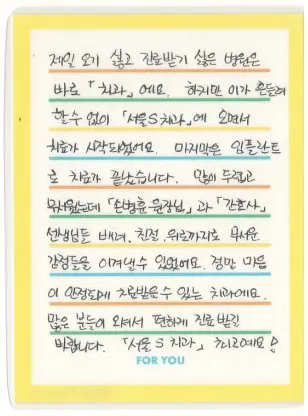 제일 오기 싫고 진료받기 싫은 병원은
바로 「치과」에요. 하지만 이가 흔들려
할수 없이 「서울S치과」에 오면서
치료가 시작되었어요. 마지막은 임플란트
로 치료가 끝났습니다. 많이 두렵고
무서웠는데 「손병훈 원장님」과 「간호사」
선생님들 배려, 친절, 위로까지로 무서운
감정들을 이겨낼수 있었어요. 정말 마음
이 안정되게 치료받을수 있는 치과에요.
많은 분들이 오셔서 편하게 진료 받길
바랍니다. 「서울S치과」 최고에요
FOR YOU